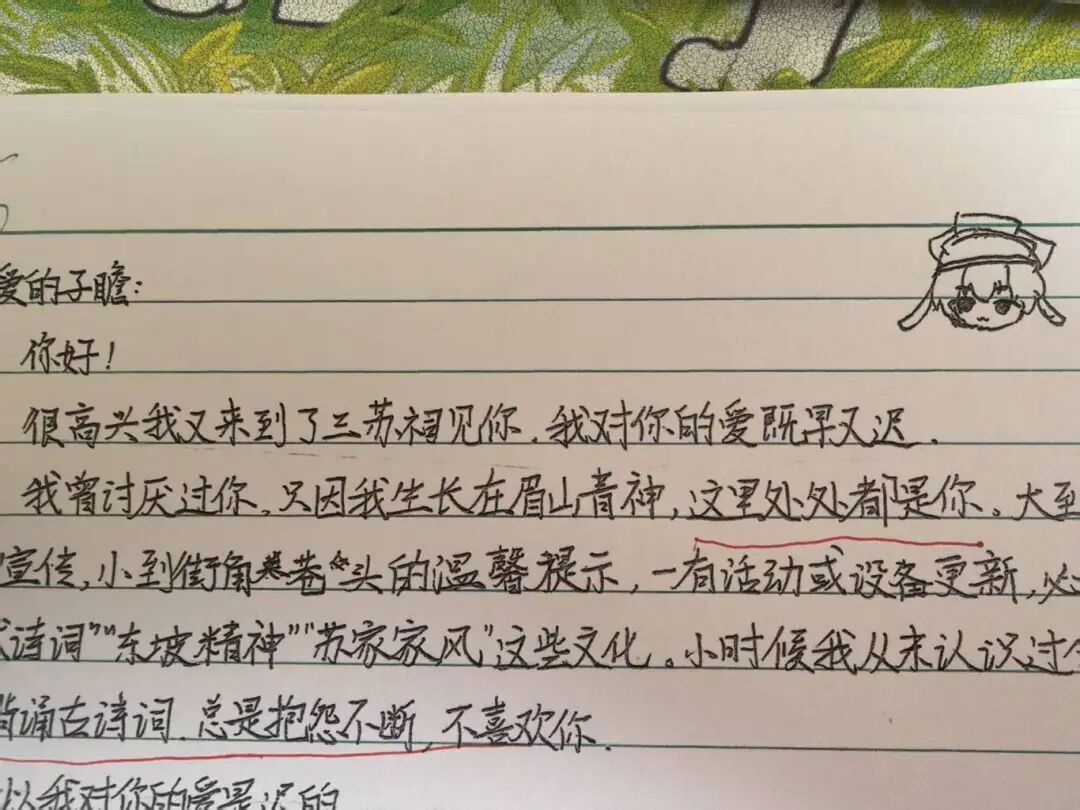 爱的子瞻：
你好！
很高兴我又来到了三苏祠见你．我对你的爱既早又迟．
我曾讨厌过你，只因我生长在眉山青神，这里处处都是你。大至
宣传，小到街角巷头的温馨提示，一有活动或设备更新，必
诗词”“东坡精神”“苏家家风”这些文化。小时候我从未认识过
背诵古诗词．总是抱怨不断，不喜欢你．
以我对你的爱是迟的